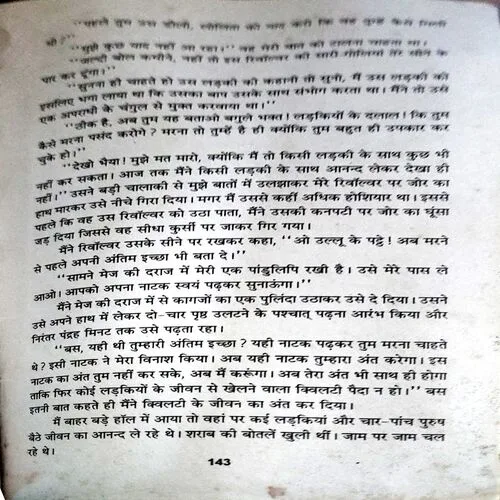 "पहले तुम उस डोली, लोलिता की बात करो कि वह तुम्हें कैसे मिली
थी?"
"मुझे कुछ याद नहीं आ रहा।" वह मेरी बात को टालना चाहता था।
"जल्दी बोल कमीने, नहीं तो इस रिवॉल्वर की सारी गोलियाँ तेरे सीने के
पार कर दूंगा।"
"सुनना ही चाहते हो उस लड़की की कहानी तो सुनो, मैं उस लड़की को
इसलिए भगा लाया था कि उसका बाप उसके साथ संभोग करता था। मैंने तो उसे
एक अपराधी के चंगुल से मुक्त करवाया था।"
"ठीक है, अब तुम यह बताओ बगुले भक्त! लड़कियों के दलाल! कि तुम
कैसे मरना पसंद करोगे? मरना तो तुम्हें है ही क्योंकि तुम बहुत ही उपकार कर
चुके हो।"
"देखो भैया! मुझे मत मारो, क्योंकि मैं तो किसी लड़की के साथ कुछ भी
नहीं कर सकता। आज तक मैंने किसी लड़की के साथ आनन्द लेकर देखा ही
नहीं।" उसने बड़ी चालाकी से मुझे बातों में उलझाकर मेरे रिवॉल्वर पर जोर का
हाथ मारकर उसे नीचे गिरा दिया। मगर मैं उससे कहीं अधिक होशियार था। इससे
पहले कि वह उस रिवॉल्वर को उठा पाता, मैंने उसकी कनपटी पर जोर का घूंसा
जड़ दिया जिससे वह सीधा कुर्सी पर जाकर गिर गया।
मैंने रिवॉल्वर उसके सीने पर रखकर कहा, "ओ उल्लू के पट्ठे! अब मरने
से पहले अपनी अंतिम इच्छा भी बता दे।"
"सामने मेज की दराज में मेरी एक पांडुलिपि रखी है। उसे मेरे पास ले
आओ। आपको अपना नाटक स्वयं पढ़कर सुनाऊंगा।"
मैंने मेज की दराज में से कागजों का एक पुलिंदा उठाकर उसे दे दिया। उसने
उसे अपने हाथ में लेकर दो-चार पृष्ठ उलटने के पश्चात् पढ़ना आरंभ किया और
निरंतर पंद्रह मिनट तक उसे पढ़ता रहा।
"बस, यही थी तुम्हारी अंतिम इच्छा? यही नाटक पढ़कर तुम मरना चाहते
थे? इसी नाटक ने मेरा विनाश किया। अब यही नाटक तुम्हारा अंत करेगा। इस
नाटक का अंत तुम नहीं कर सके, अब मैं करूंगा। अब तेरा अंत भी साथ ही होगा
ताकि फिर कोई लड़कियों के जीवन से खेलने वाला क्विलटी पैदा न हो।" बस
इतनी बात कहते ही मैंने क्विलटी के जीवन का अंत कर दिया।
मैं बाहर बड़े हॉल में आया तो वहां पर कई लड़कियां और चार-पांच पुरुष
बैठे जीवन का आनन्द ले रहे थे। शराब की बोतलें खुली थीं। जाम पर जाम चल
रहे थे।
143